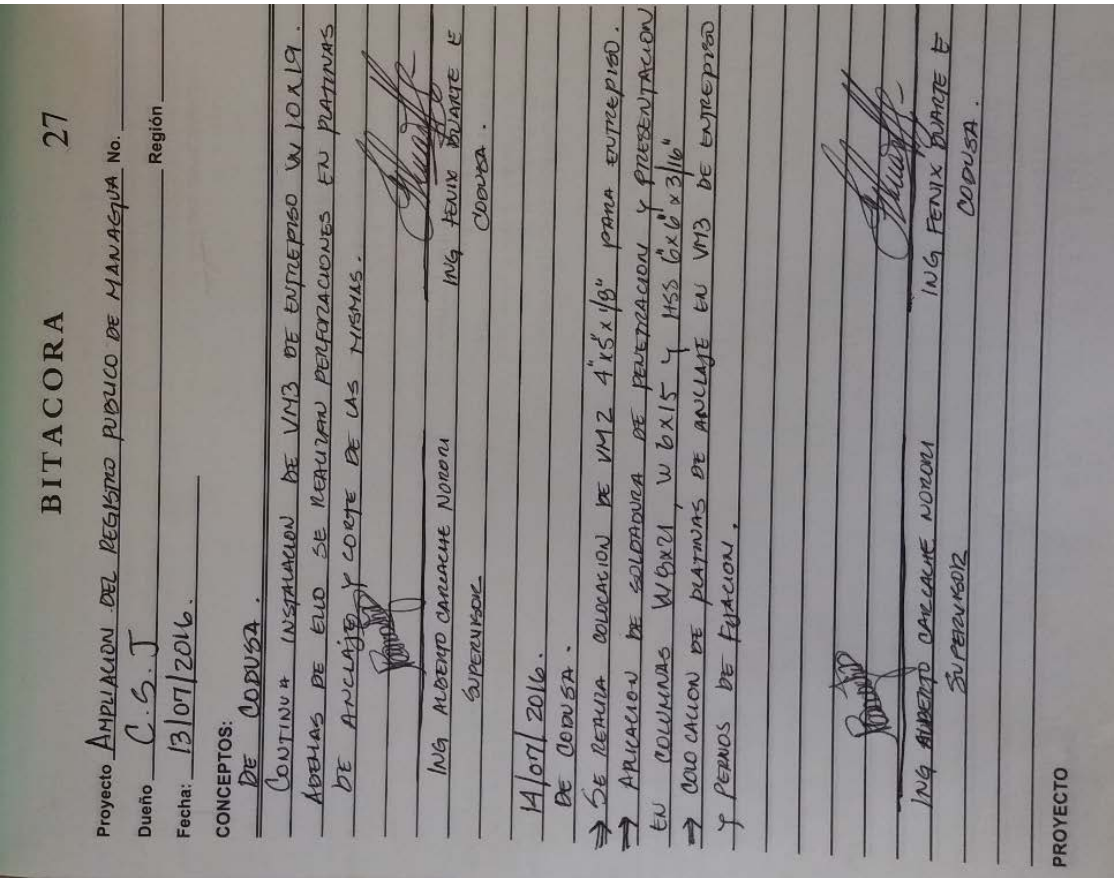 BITACORA 27
Proyecto AMPLIACION DEL REGISTRO PUBLICO DE MANAGUA No.
Dueño C.S.J Región
Fecha: 13/07/2016.
CONCEPTOS:
DE CODUSA.
CONTINUA INSTALACION DE VM3 DE ENTREPISO W 10X19.
ADEMAS DE ELLO SE REALIZAN PERFORACIONES EN PLATINAS
DE ANCLAJE Y CORTE DE LAS MISMAS.
ING ALBERTO CARCACHE NORORI ING FENIX DUARTE E
SUPERVISOR CODUSA.
14/07/2016.
DE CODUSA.
⇒ SE REALIZA COLOCACION DE VM2 4"x5"x1/8" PARA ENTREPISO.
⇒ APLICACION DE SOLDADURA DE PENETRACION Y PRESENTACION
EN COLUMNAS W8x21, W 6x15 Y HSS 6"x6"x3/16"
⇒ COLOCACION DE PLATINAS DE ANCLAJE EN VM3 DE ENTREPISO
Y PERNOS DE FIJACION.
ING ALBERTO CARCACHE NORORI ING FENIX DUARTE E
SUPERVISOR CODUSA.
PROYECTO